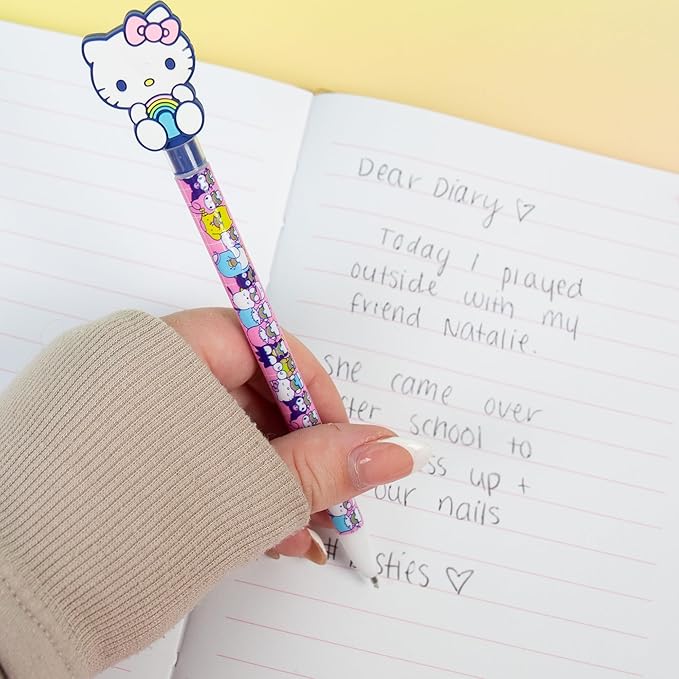 Dear Diary ♡
Today I played
outside with my
friend Natalie.
she came over
school to
up +
our nails
♡